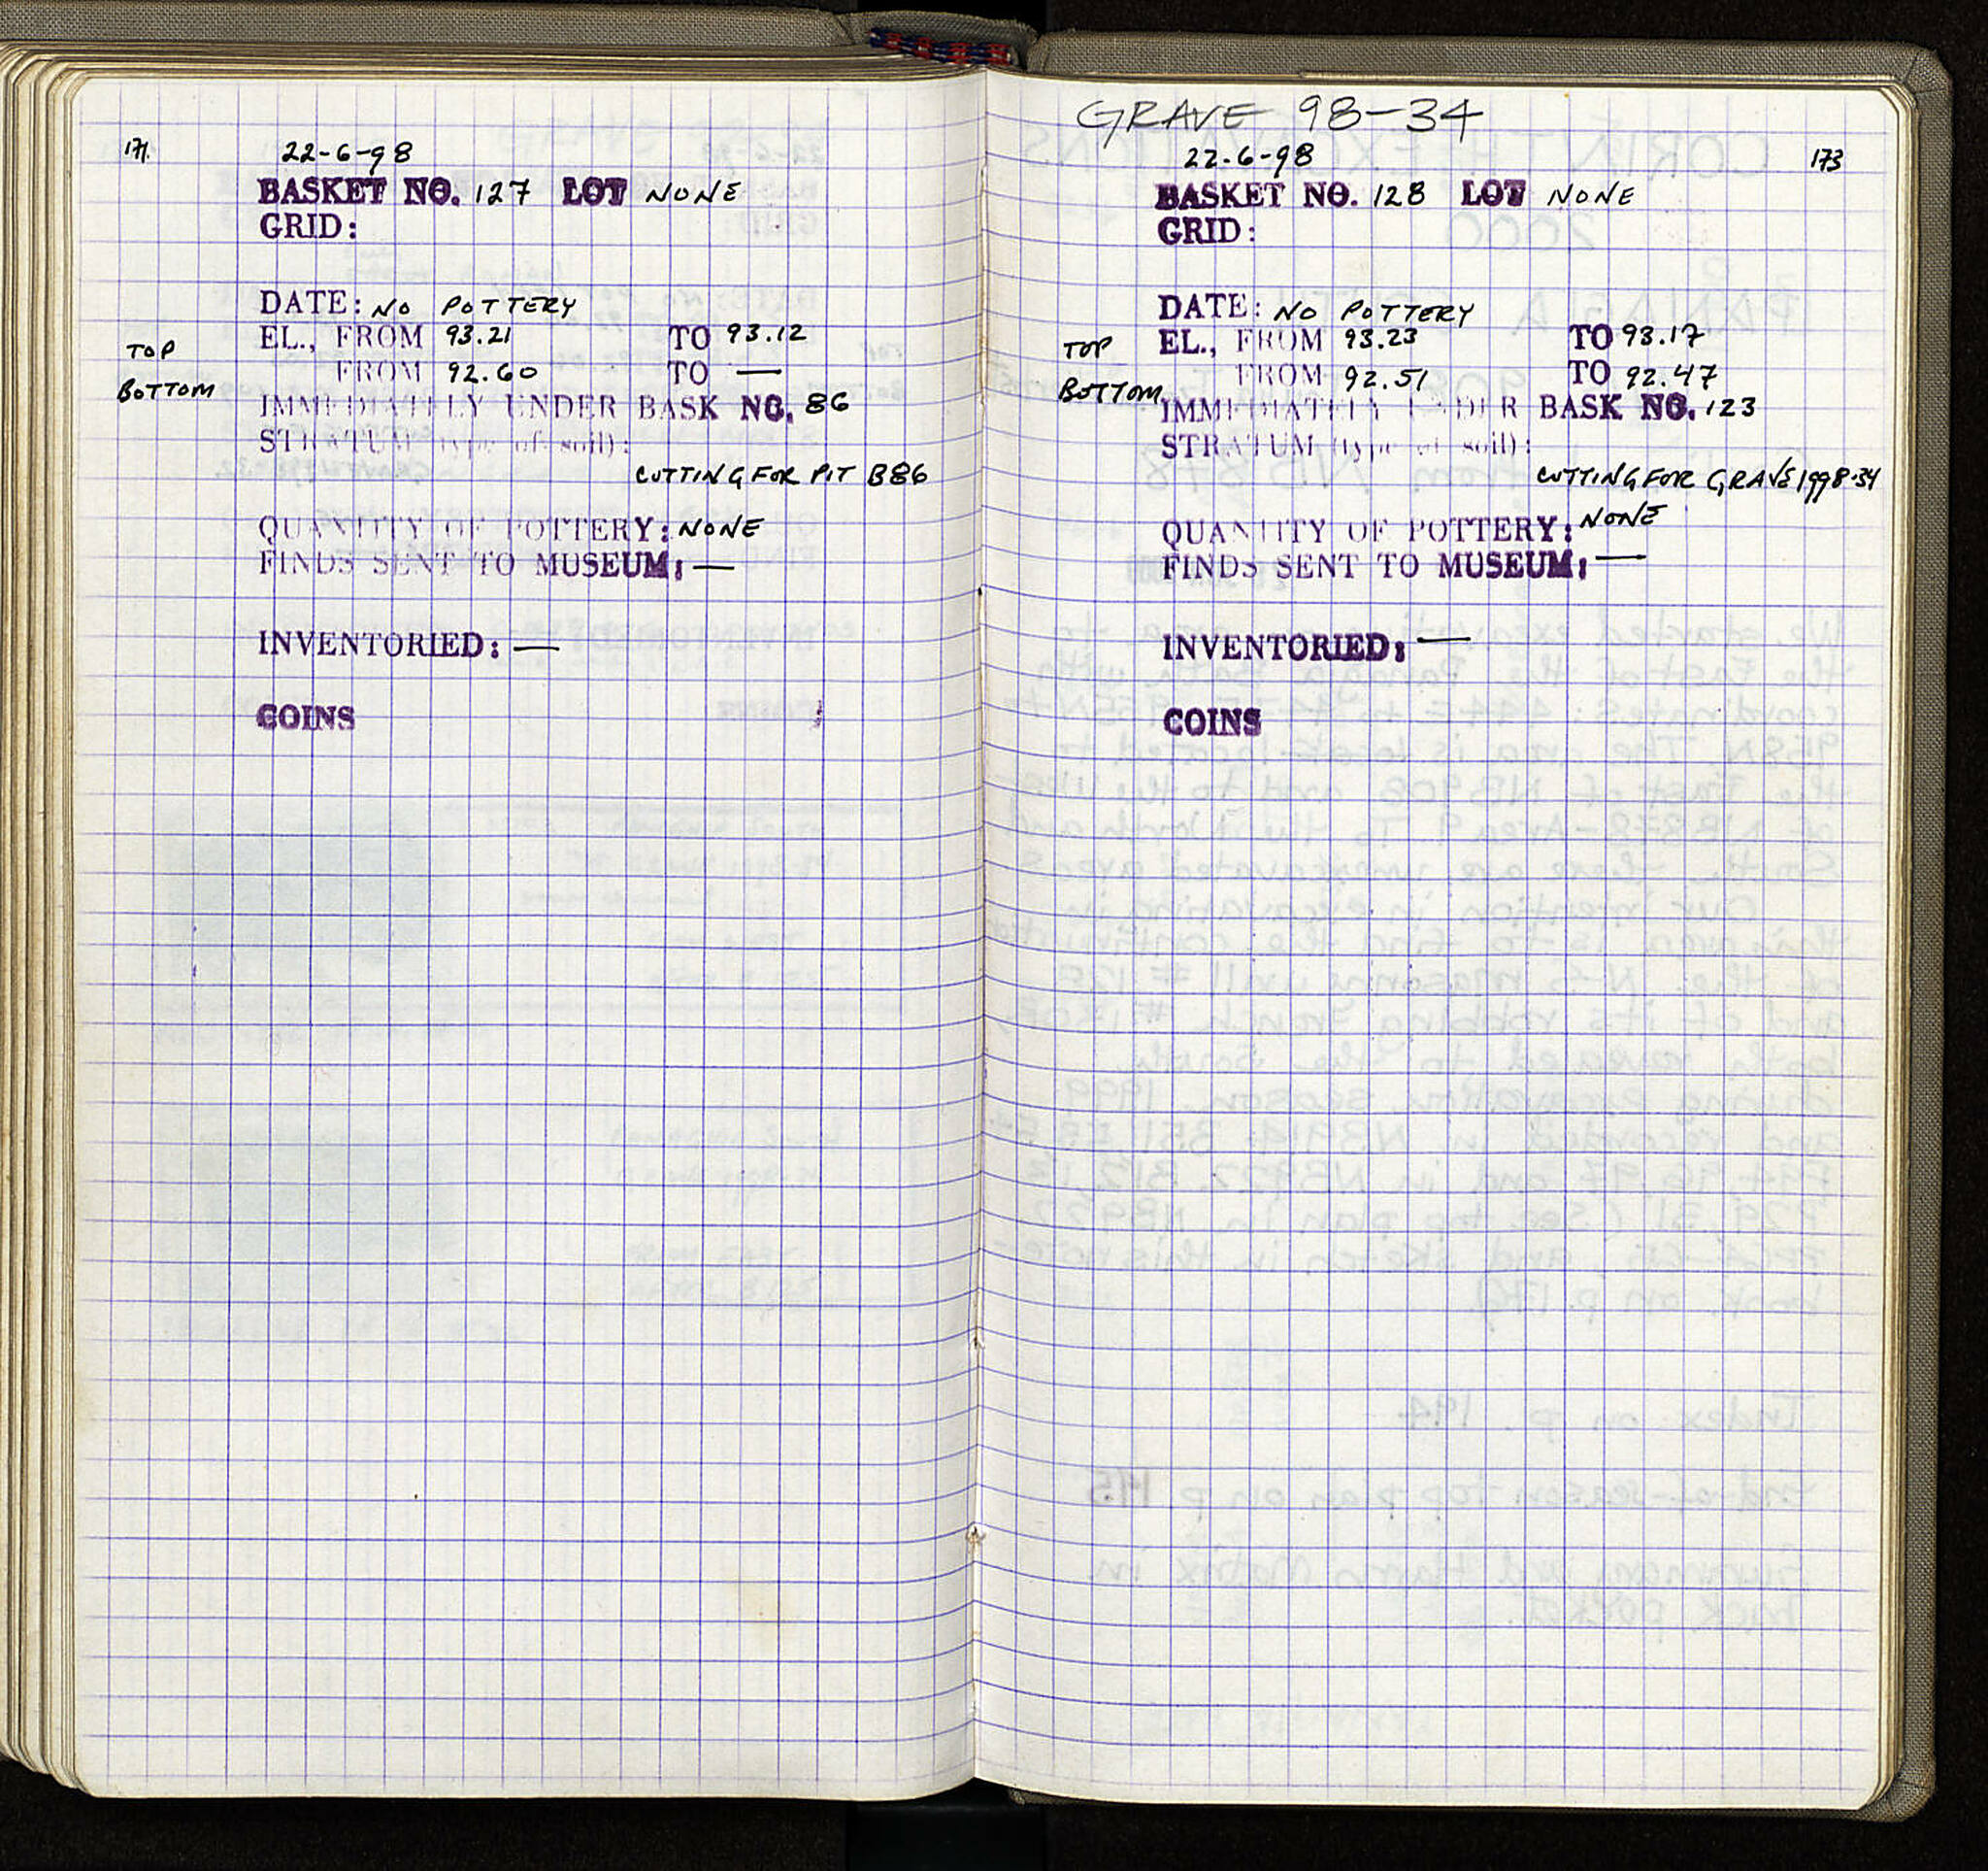 171.
22-6-98
BASKET NO. 127 LOT NONE
GRID:
DATE: NO POTTERY
TOP EL., FROM 93.21 TO 93.12
BOTTOM FROM 92.60 TO —
IMMEDIATELY UNDER BASK NO. 86
STRATUM (type of soil):
CUTTING FOR PIT B86
QUANTITY OF POTTERY: NONE
FINDS SENT TO MUSEUM: —
INVENTORIED: —
COINS
GRAVE 98-34
22.6-98
173
BASKET NO. 128 LOT NONE
GRID:
DATE: NO POTTERY
TOP EL., FROM 93.23 TO 93.17
BOTTOM FROM 92.51 TO 92.47
IMMEDIATELY UNDER BASK NO. 123
STRATUM (type of soil):
CUTTING FOR GRAVE 1998-34
QUANTITY OF POTTERY: NONE
FINDS SENT TO MUSEUM: —
INVENTORIED: —
COINS